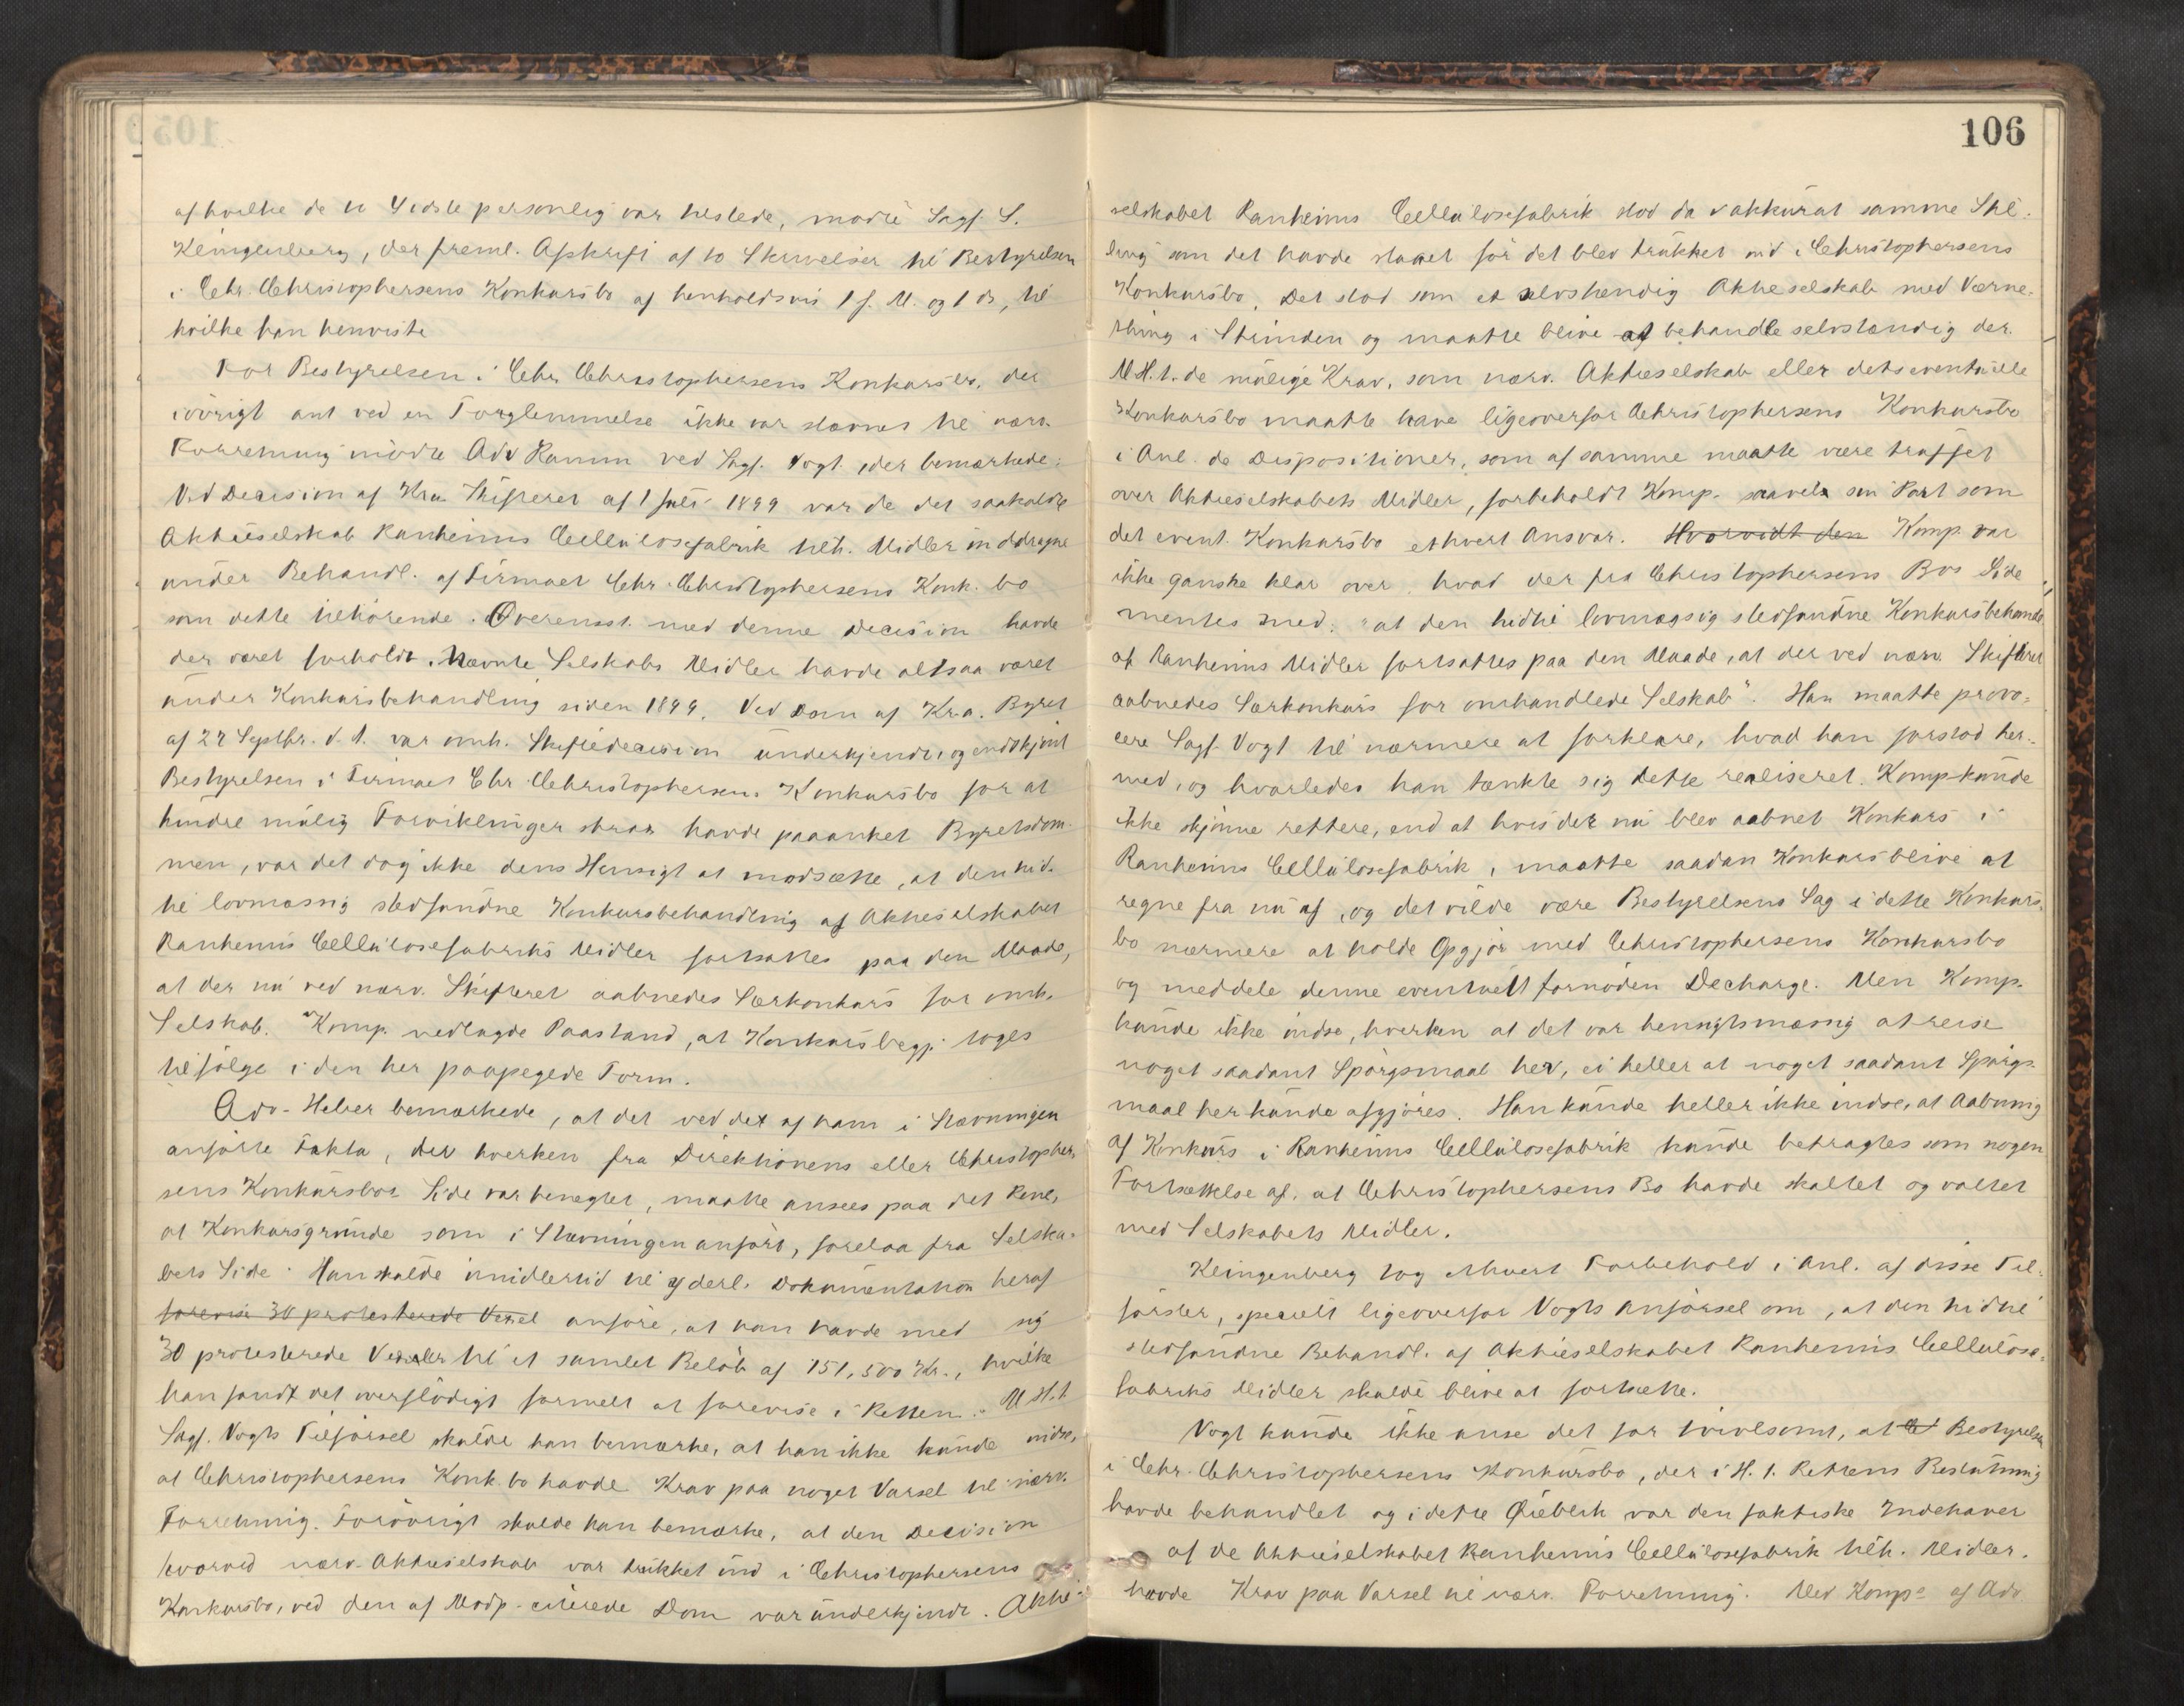 af hvilke de to sidste personlig var tilstede, mødte Sagf. S.
Klingenberg, der freml. Afskrift af to Skrivelser til Bestyrelsen
i Chr. Christophersens Konkursbo af henholdsvis 1 f. M. og 1 ds, til
hvilke han henviste
For Bestyrelsen i Chr. Christophersens Konkursbo, der
iøvrigt ant ved en Forglemmelse ikke var stævnet til nærv.
Forretning mødte Adv Hamm ved Sagf. Vogt, der bemærkede:
Ved Decision af Kra. Skifteret af 1 Juli 1899 var de det saakaldte
Aktieselskab Ranheims Cellulosefabrik tilh. Midler inddragne
under Behandl. af Firmaet Chr. Christophersens Konk. bo
som dette tilhørende. Overensst. med denne Decision havde
der været forholdt. Nævnte Selskabs Midler havde altsaa været
under Konkursbehandling siden 1899. Ved Dom af Kra. Byret
af 27 Septbr. d. A. var omh. Skiftedecision underkjendt og endskjønt
Bestyrelsen i Firmaet Chr. Christophersens Konkursbo for at
hindre mulig Forviklinger straks havde paaanket Byretsdom-
men, var det dog ikke dens Hensigt at modsætte, at den hid-
til lovmæssig stedfundne Konkursbehandling af Aktieselskabet
Ranheims Cellulosefabriks Midler fortsattes paa den Maade,
at der nu ved nærv. Skifteret aabnedes Særkonkurs for omh.
Selskab. Komp. nedlagde Paastand, at Konkursbegj. toges
tilfølge i den her paapegede Form.
Adv. Heber bemærkede, at det ved det af ham i Stævningen
anførte Fakta, der hverken fra Direktionens eller Christopher-
sens Konkursbos Side var benegtet, maatte ansees paa det Rene,
at Konkursgrunde som i Stævningen anført, forelaa fra Selska-
bets Side. Han skulde imidlertid til yderl. Dokumentation heraf
forevise 30 protesterede Vexel anføre, at han havde med sig
30 protesterede Vexler til et samlet Beløb af 151,500 Kr., hvilke
han fandt det overflødigt formelt at forevise i Retten. M.H.t.
Sagf. Vogts Tilførsel skulde han bemærke, at han ikke kunde indse,
at Christophersens Konk.bo havde Krav paa noget Varsel til nærv.
Forretning. Forøvrigt skulde han bemærke, at den Decision
hvorved nærv. Aktieselskab var trukket ind i Christophersens
Konkursbo, ved den af Modp. citerede Dom var underkjendt. Aktie-
106
selskabet Ranheims Cellulosefabrik stod da i akkurat samme Stil-
ling som det havde staaet før det blev trukket ind i Christophersens
Konkursbo. Det stod som et selvstændig Aktieselskab med Værne-
thing i Strinden og maatte blive at behandle selvstændig der.
M.H.t. de mulige Krav, som nærv. Aktieselskab eller dets eventuelle
Konkursbo maatte have ligeoverfor Christophersens Konkursbo
i Anl. de Dispositioner, som af samme maatte være truffet
over Aktieselskabets Midler, forbeholdt Komp. saavel sin Part som
det event. Konkursbo ethvert Ansvar. Hvorvidt den Komp. var
ikke ganske klar over, hvad der fra Christophersens Bos Side
mentes med: "at den hidtil lovmæssig stedfundne Konkursbehandl.
af Ranheims Midler fortsattes paa den Maade, at der ved nærv. Skifteret
aabnedes Særkonkurs for omhandlede Selskab". Han maatte provo-
cere Sagf. Vogt til nærmere at forklare, hvad han forstod her-
med, og hvorledes han tænkte sig dette realiseret. Komp. kunde
ikke skjønne rettere, end at hvis der nu blev aabnet Konkurs i
Ranheims Cellulosefabrik, maatte saadan Konkurs blive at
regne fra nu af, og det vilde være Bestyrelsens Sag i dette Konkurs-
bo nærmere at holde Opgjør med Christophersens Konkursbo
og meddele denne eventuelt fornøden Decharge. Men Komp.
kunde ikke indse, hverken at det var hensigtsmæssig at reise
noget saadant Spørgsmaal her, ei heller at noget saadant Spørgs-
maal her kunde afgjøres. Han kunde heller ikke indse, at Aabning
af Konkurs i Ranheims Cellulosefabrik kunde betragtes som nogen
Fortsættelse af, at Christophersens Bo havde skaltet og valtet
med Selskabets Midler.
Klingenberg tog ethvert Forbehold i Anl. af disse Til-
førsler, specielt ligeoverfor Vogts Anførsel om, at den hidtil
stedfundne Behandl. af Aktieselskabet Ranheims Cellulose-
fabriks Midler skulde blive at fortsætte.
Vogt kunde ikke anse det for tvivlsomt, at Bestyrelsen
i Chr. Christophersens Konkursbo, der i H. t. Rettens Beslutning
havde behandlet og i dette Øieblik var den faktiske Indehaver
af de Aktieselskabet Ranheims Cellulosefabrik tilh. Midler,
havde Krav paa Varsel til nærv. Forretning. Med Komp. af Adv.